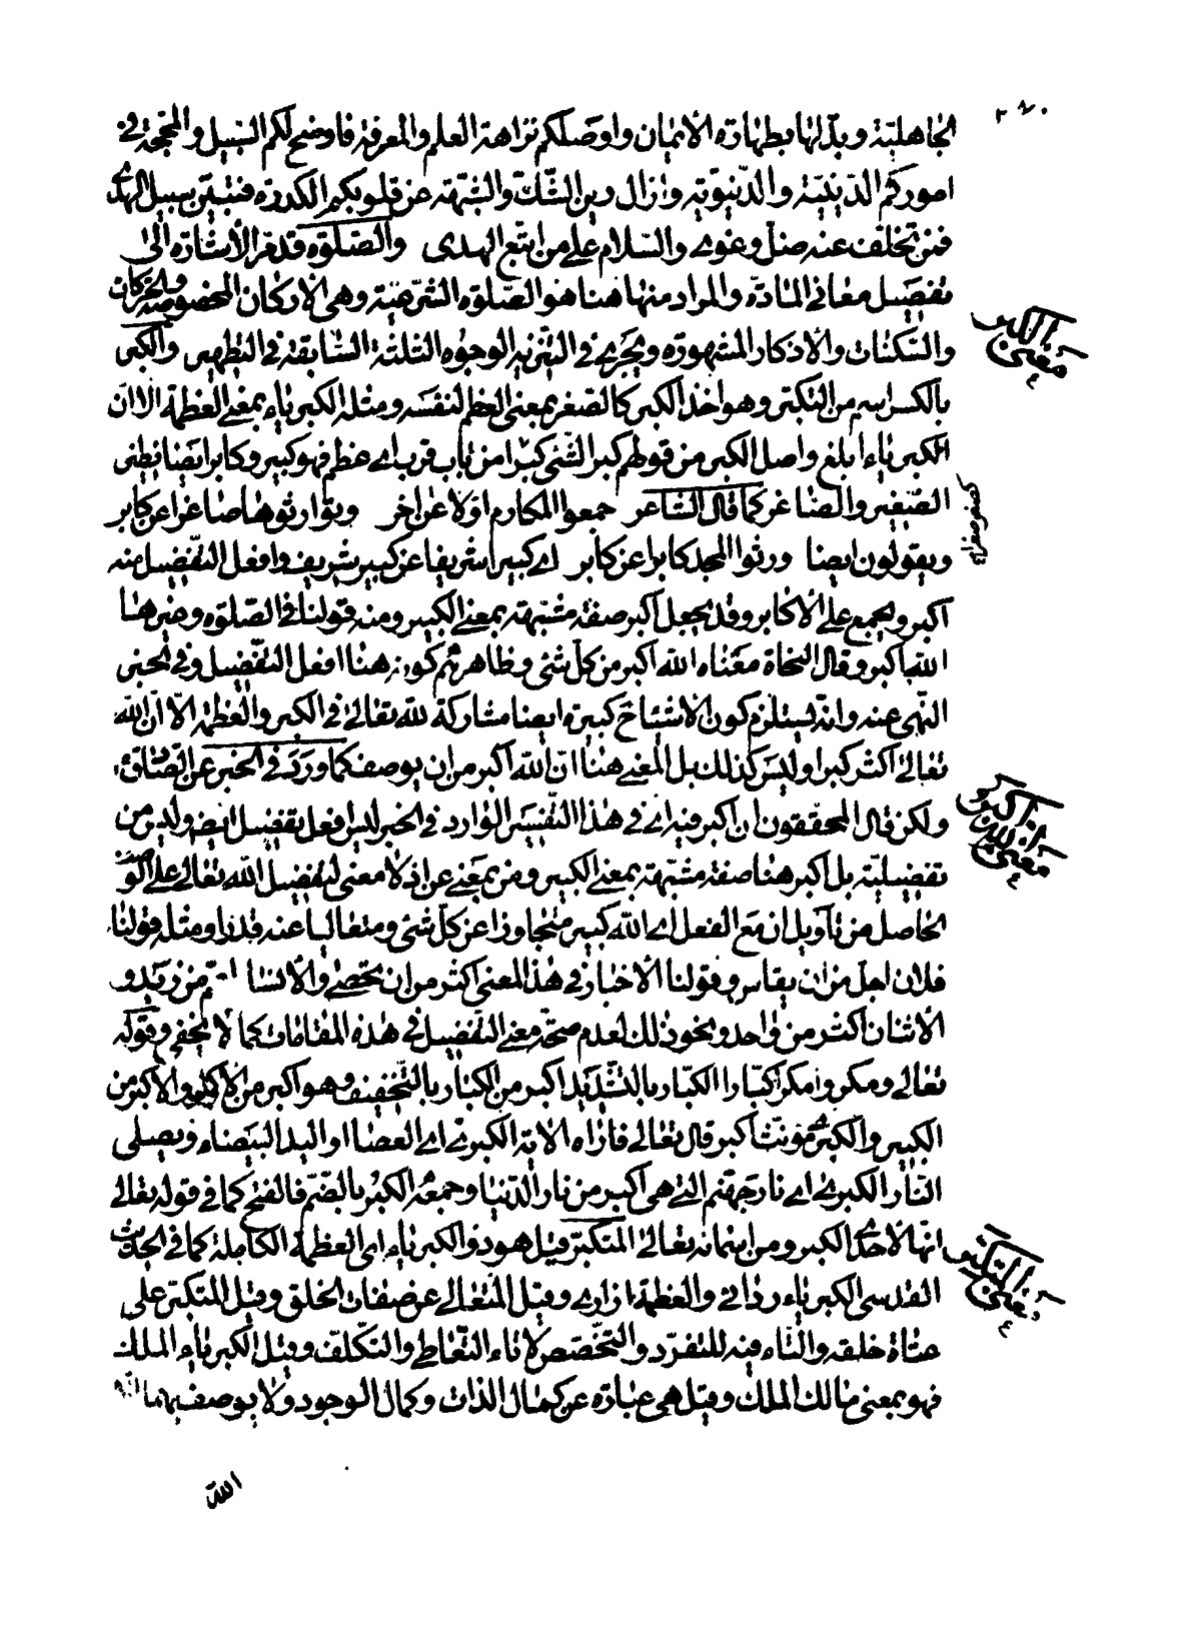 ٢٦٠
الجاهلية وبدلها بطهارة الايمان واوصلكم نزاهة العلم والمعرفة فاوضح لكم السبيل والمحجة في
اموركم الدينية والدنيوية وازال رين الشك والشبهة عن قلوبكم الكدرة فتبين سبيل الهدى
فمن تخلف عنه ضل وغوى والسلام على من اتبع الهدى والصلوة قد مر الاشارة الى
تفصيل معاني المادة والمراد منها هنا هو الصلوة الشرعية وهي الاركان المخصوصة والحركات
والسكنات والاذكار المشهورة ويجري في التنزيه الوجوه الثلثة السابقة في التطهير والكبر
معنى الكبر
بالكسر اسم من التكبر وهو اخذ الكبر كالصغر بمعنى العظم لنفسه ومثله الكبرياء بمعنى العظمة الا ان
الكبرياء ابلغ واصل الكبر من قولهم كبر الشئ كبرا من باب قرب اي عظم فهو كبير وكابر ايضا نظير
الصغير والصاغر كما قال الشاعر جمعوا المكارم اولا عن اخر وتوارثوها صاغرا عن كابر
ويقولون ايضا ورثوا المجد كابرا عن كابر اي كبيرا شريفا عن كبير شريف وافعل التفضيل منه
اكبر ويجمع على الاكابر وقد يجعل اكبر صفة مشبهة بمعنى الكبير ومنه قولنا في الصلوة وغيرها
الله اكبر وقال النحاة معناه الله اكبر من كل شئ وظاهرهم كونه هنا افعل التفضيل وفي الخبر
النهي عنه وانه يستلزم كون الاشياء كبيرة ايضا مشاركة لله تعالى في الكبر والعظمة الا ان الله
تعالى اكثر كبرا وليس كذلك بل المعنى هنا ان الله اكبر من ان يوصف كما ورد في الخبر عن الصادق ع
ولكن قال المحققون ان اكبر فيه اي في هذا التفسير الوارد في الخبر ليس افعل تفضيل ايضا وليس من
معنى الله اكبر
تفضيلية بل اكبر هنا صفة مشبهة بمعنى الكبير ومن بمعنى عن اذ لا معنى لتفضيل الله تعالى على الوصف
الحاصل من تاويل ان مع الفعل اي الله كبير متجاوزا عن كل شئ ومتعاليا عنه قدرا ومثله قولنا
فلان اجل من ان يقاس وقولنا الاخبار في هذا المعنى اكثر من ان تحصى والانسان من زيد و
الاثنان اكثر من واحد ونحو ذلك لعدم صحة معنى التفضيل في هذه المقامات كما لا يخفى وقوله
تعالى ومكروا مكرا كبارا الكبار بالتشديد اكبر من الكبار بالتخفيف وهو اكبر من الاكبر والاكبر من
الكبير والكبرى مؤنث اكبر قال تعالى فاراه الاية الكبرى اي العصا او اليد البيضاء ويصلى
النار الكبرى اي نار جهنم التي هي اكبر من نار الدنيا وجمعه الكبر بالضم فالفتح كما في قوله تعالى
انها لاحدى الكبر ومن اسمائه تعالى المتكبر قيل هو ذو الكبرياء اي العظمة الكاملة كما في الحديث
معنى المتكبر
القدسي الكبرياء ردائي والعظمة ازاري وقيل المتعالى عن صفات الخلق وقيل المتكبر على
عتاة خلقه والتاء فيه للتفرد والتخصص لا تاء التعاطي والتكلف وقيل الكبرياء الملك
فهو بمعنى مالك الملك وقيل هي عبارة عن كمال الذات وكمال الوجود ولا يوصف بهما الا
الله